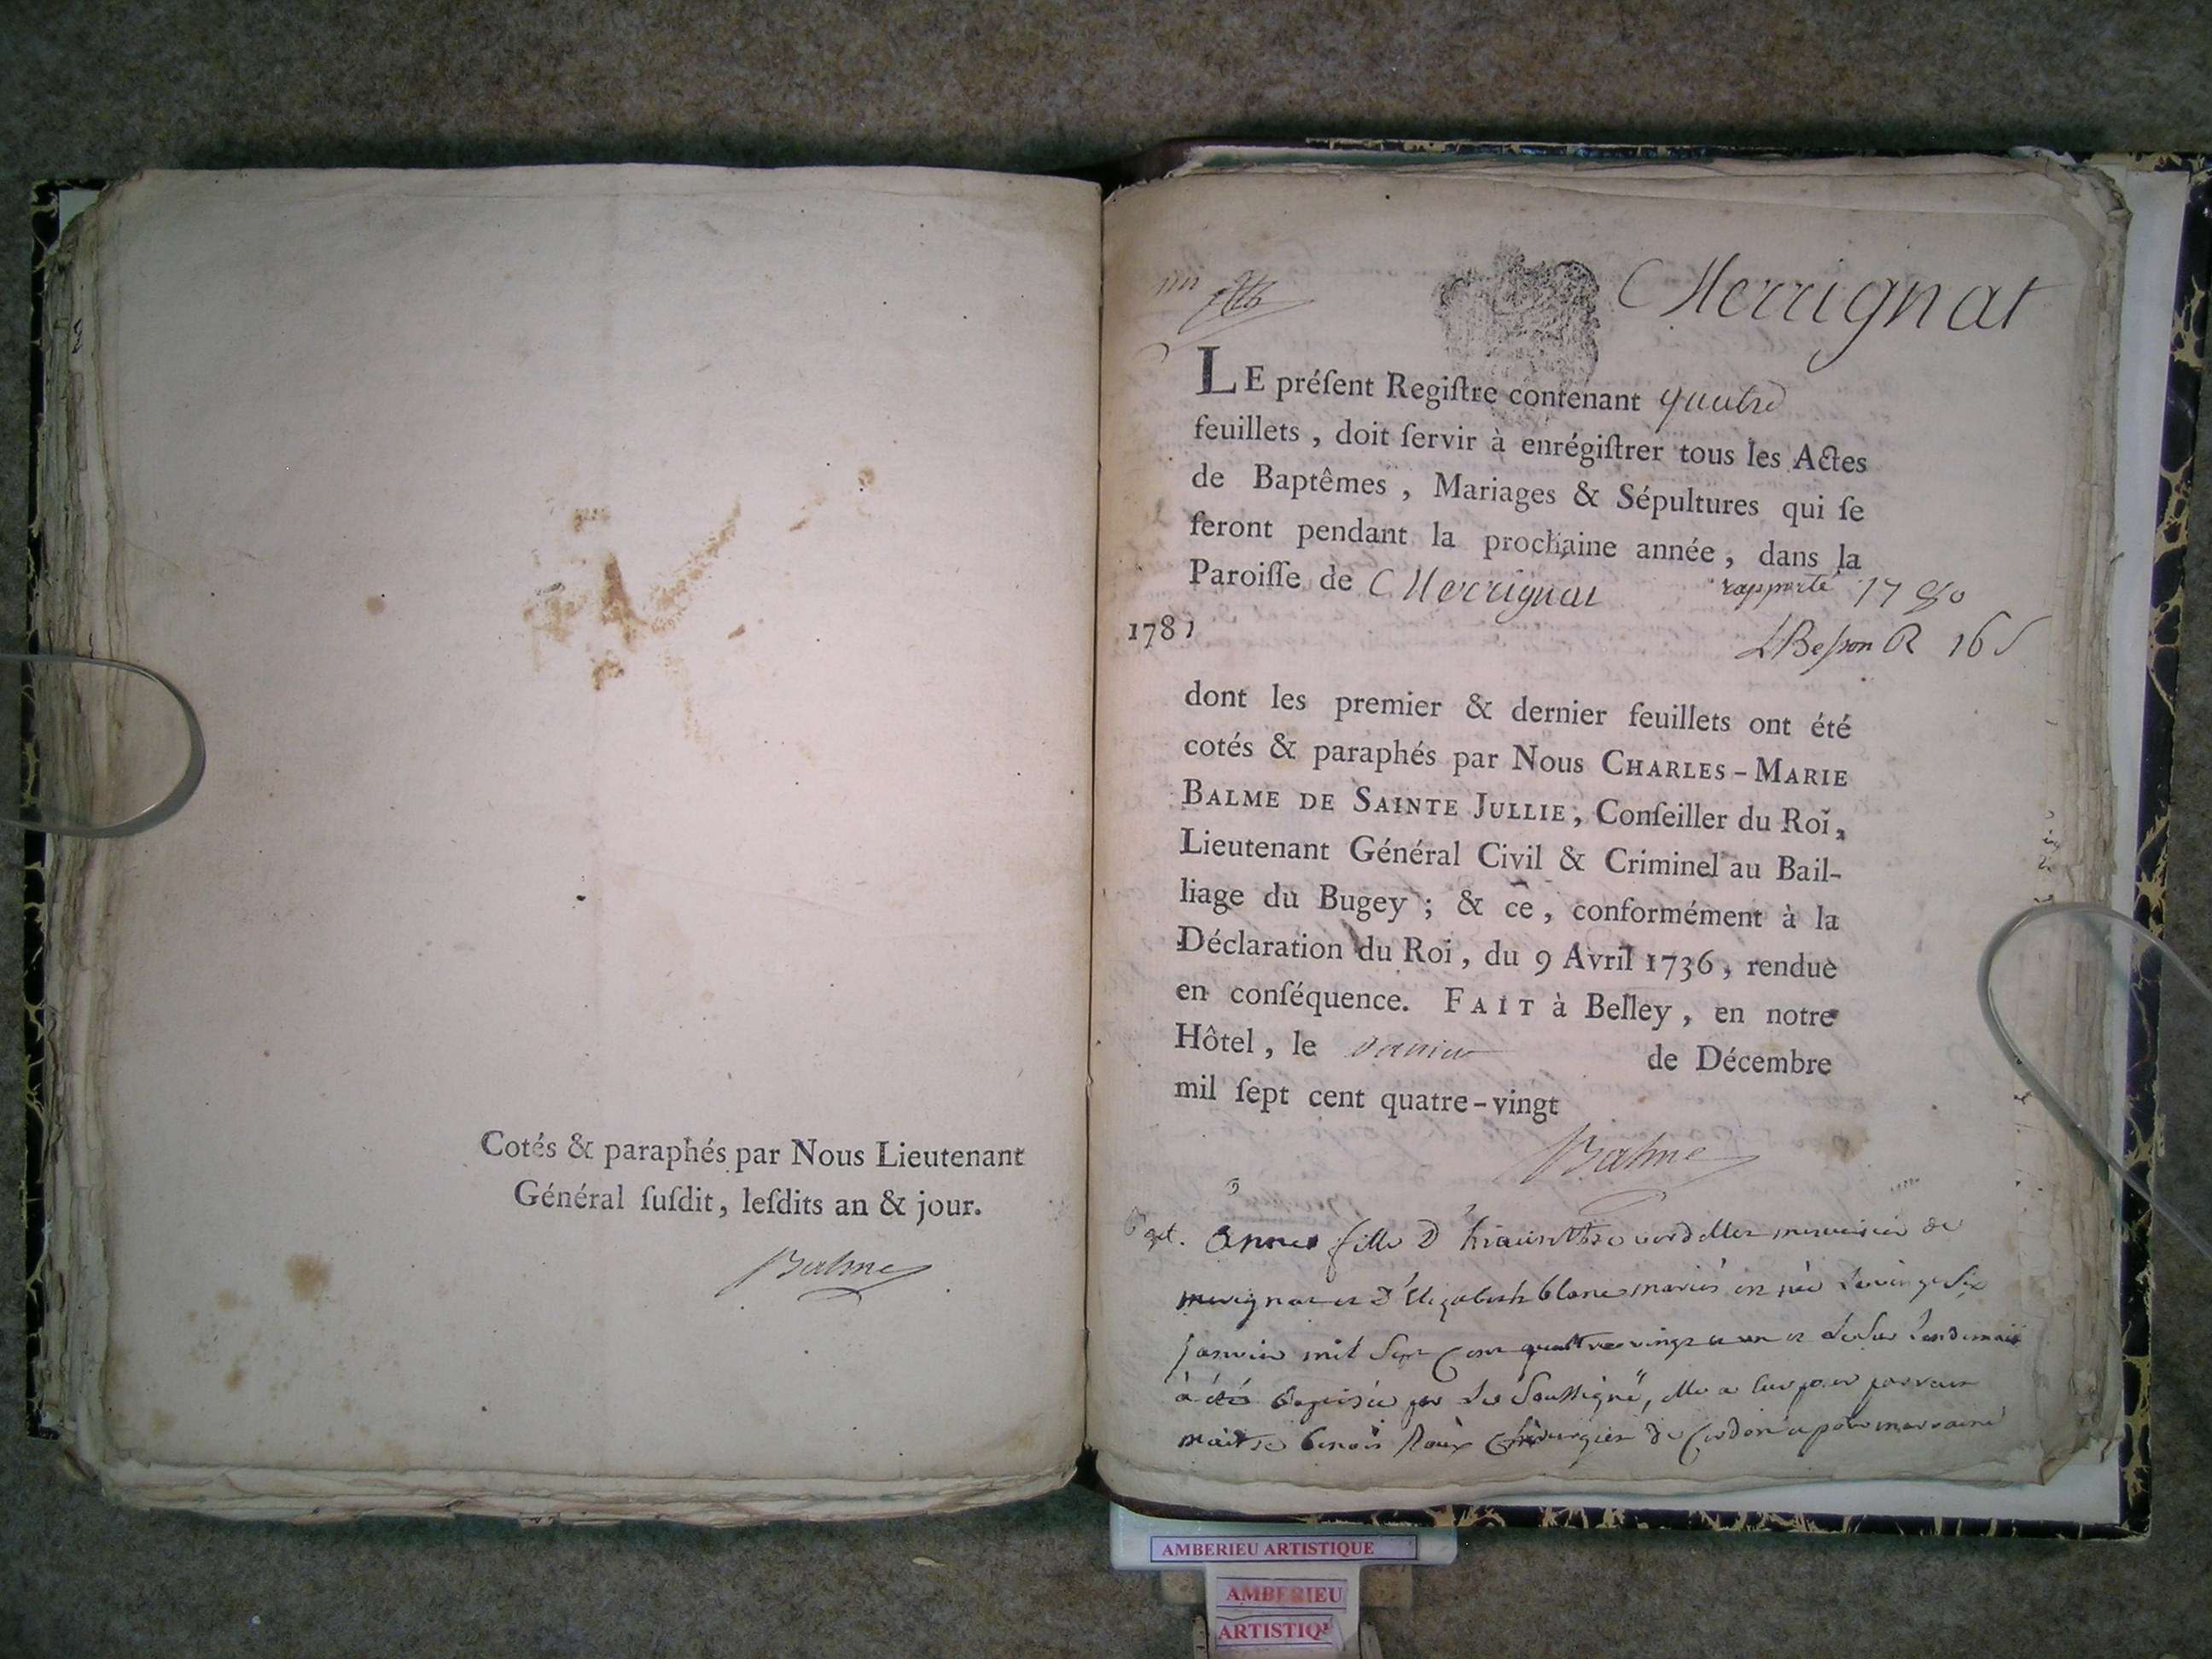 Cotés & paraphés par Nous Lieutenant
Général ſuſdit, leſdits an & jour.
Balme
Merrignat
LE préſent Regiſtre contenant quatre
feuillets, doit ſervir à enrégiſtrer tous les Actes
de Baptêmes, Mariages & Sépultures qui ſe
feront pendant la prochaine année, dans la
Paroiſſe de Merrignat rapporté 1780
1781
LBesson R 16 s
dont les premier & dernier feuillets ont été
cotés & paraphés par Nous CHARLES-MARIE
BALME DE SAINTE JULLIE, Conſeiller du Roi,
Lieutenant Général Civil & Criminel au Bail-
liage du Bugey; & ce, conformément à la
Déclaration du Roi, du 9 Avril 1736, rendue
en conſéquence. FAIT à Belley, en notre
Hôtel, le de Décembre
mil ſept cent quatre-vingt
Balme
Bapt. Anne fille D de
D'Elizabeth blanc mariés est née le vingt six
janvier mil sept cent quattre vingt et un et le lendemain
à été baptisée par le Soussigné, elle a eu pour parrain
maitre benoit Roux chirurgien de Cordon et pour marraine
AMBERIEU ARTISTIQUE
AMBERIEU
ARTISTIQ